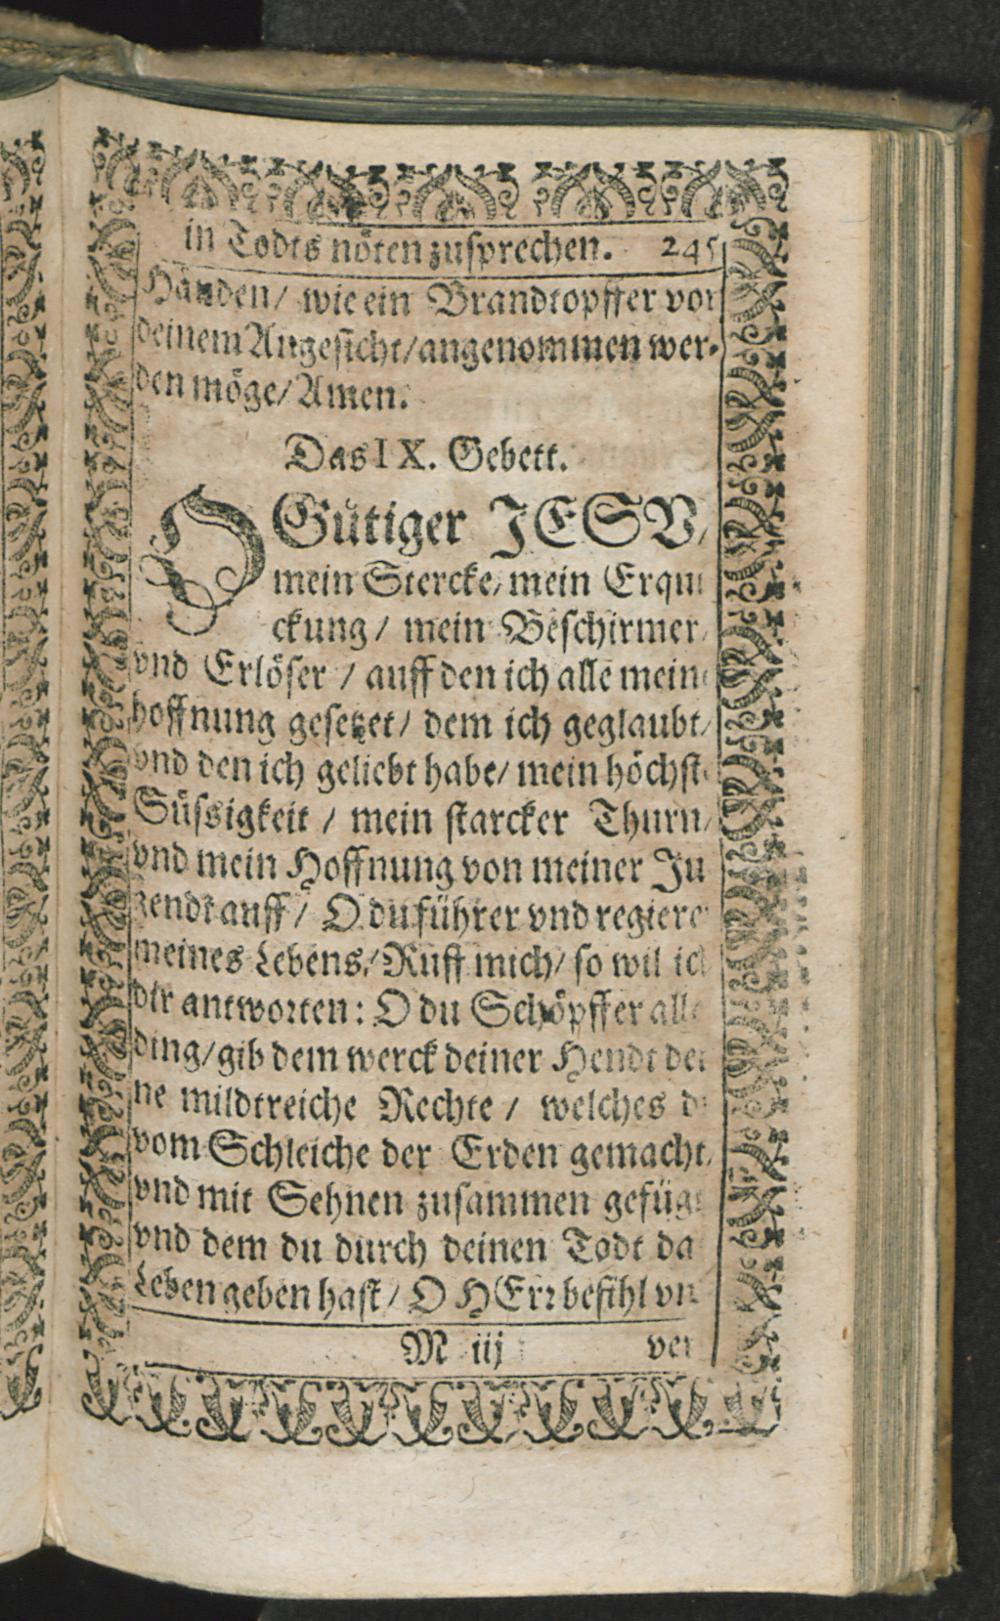 in Todts nöten zusprechen. 245
Händen/ wie ein Brandtopffer vor
deinem Angesicht/ angenommen wer-
den möge/ Amen.
Das IX. Gebett.
O Gütiger JESV/
mein Stercke/ mein Erqui
ckung / mein Beschirmer/
vnd Erlöser / auff den ich alle meine
hoffnung gesetzet/ dem ich geglaubt/
vnd den ich geliebt habe/ mein höchste
Süssigkeit / mein starcker Thurn/
vnd mein Hoffnung von meiner Ju
gendt auff / O du führer vnd regierer
meines Lebens/ Ruff mich/ so wil ich
dir antworten: O du Schöpffer alle
ding/ gib dem werck deiner Hendt dei
ne mildtreiche Rechte / welches du
vom Schleiche der Erden gemacht/
vnd mit Sehnen zusammen gefügt
vnd dem du durch deinen Todt da
Leben geben hast / O HErr befihl vn
M iij ver